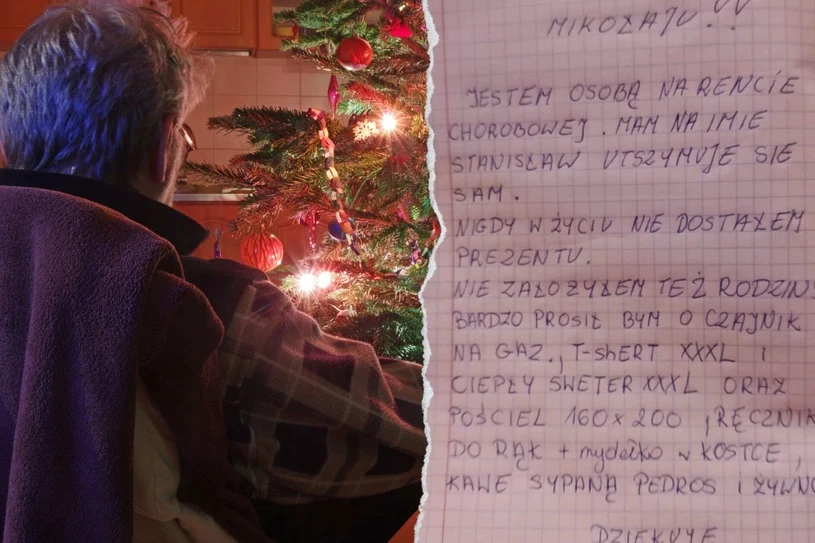 MIKOŁAJU!!
JESTEM OSOBĄ NA RENCIE
CHOROBOWEJ. MAM NA IMIE
STANISŁAW UTSZYMUJE SIE
SAM.
NIGDY W ŻYCIU NIE DOSTAŁEM
PREZENTU.
NIE ZAŁOŻYŁEM TEŻ RODZINY
BARDZO PROSIŁ BYM O CZAJNIK
NA GAZ., T-ShERT XXXL i
CIEPŁY SWETER XXXL ORAZ
POŚCIEL 160x200, RĘCZNIK
DO RĄK + mydełko w KOSTCE,
KAWE SYPANĄ PEDROS i ŻYWNO
DZIĘKUYE